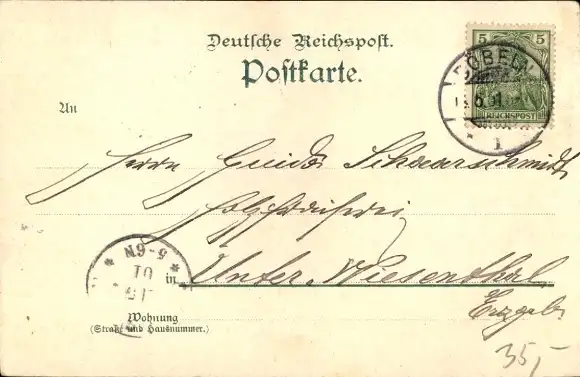 Deutsche Reichspost.
Postkarte.
5 5
REICHSPOST
DÖBELN
1
An
Herrn Guido Schaarschmidt
in Unter-Wiesenthal
Erzgeb.
5-6N
Wohnung
(Straße und Hausnummer.)
35,-